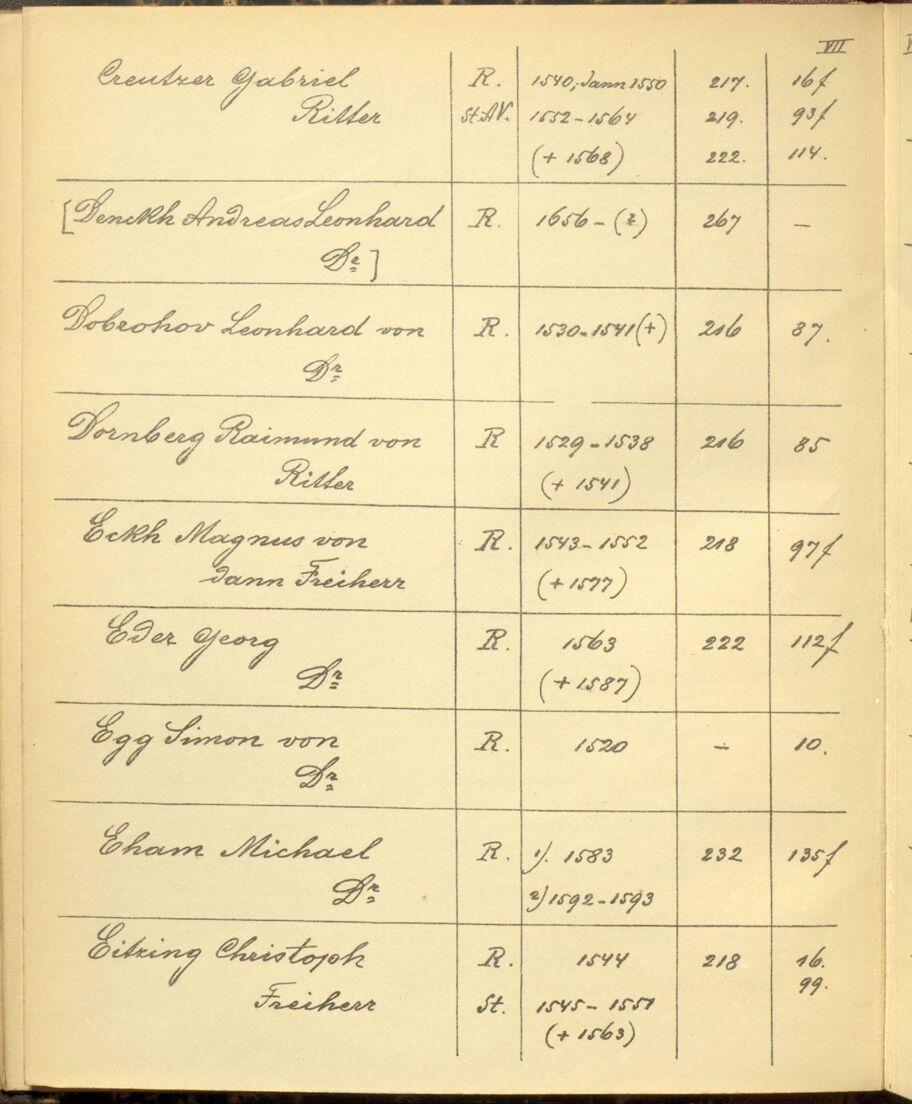 VII
Creutzer Gabriel R. 1540; dann 1550 217. 16f
Ritter St.AV. 1552-1564 219. 93f
(+ 1568) 222. 114.
[Denckh Andreas Leonhard R. 1656 - (?) 267 -
Dr]
Dobrohov Leonhard von R. 1530-1541(+) 216 87.
Dr
Dornberg Raimund von R 1529-1538 216 85
Ritter (+ 1541)
Eckh Magnus von R. 1543-1552 218 97f
dann Freiherr (+ 1577)
Eder Georg R. 1563 222 112f
Dr (+ 1587)
Egg Simon von R. 1520 - 10.
Dr
Eham Michael R. 1). 1583 232 135f
Dr 2) 1592-1593
Eitzing Christoph R. 1544 218 16.
99.
Freiherr St. 1545-1551
(+ 1563)